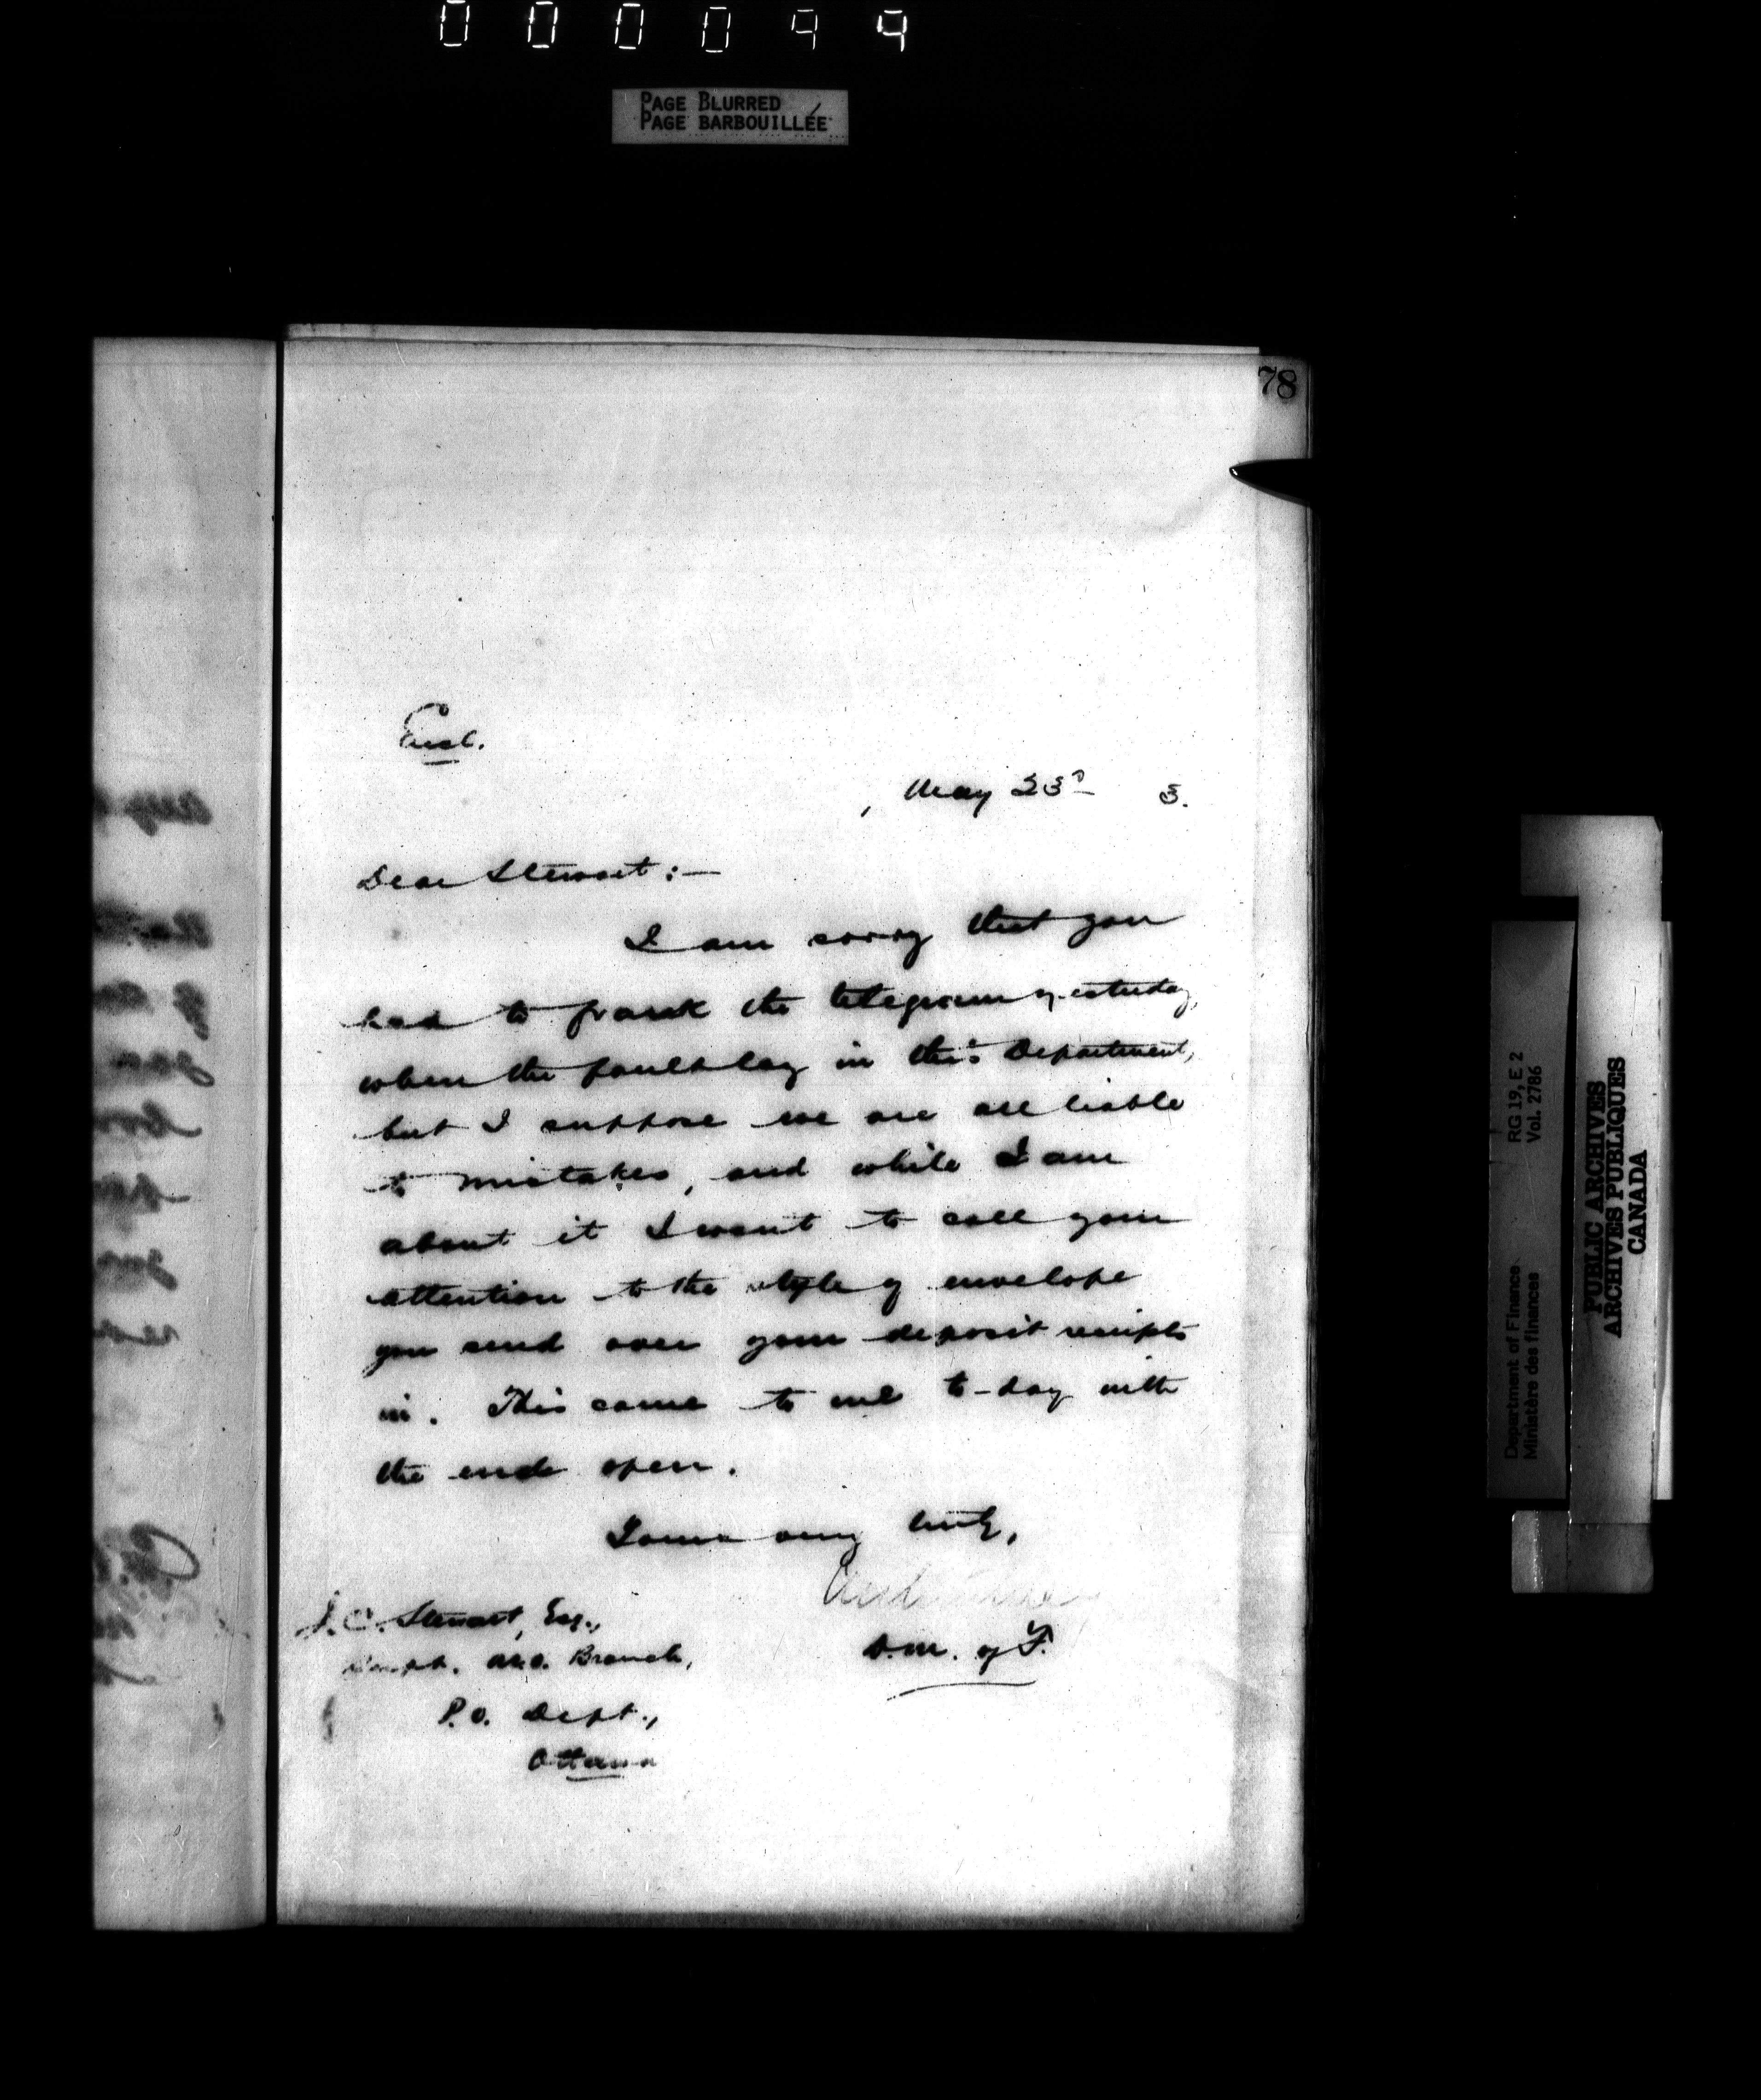 000099
PAGE BLURRED
PAGE BARBOUILLÉE
78
Encl.
, May 23d 3.
Dear Stewart:—
I am sorry that you
had to frank the telegram yesterday,
when the fault lay in this Department,
but I suppose we are all liable
to mistakes, and while I am
about it I want to call your
attention to the style of envelope
you send over your deposit receipts
in. This came to me to-day with
the ends open.
Yours very truly,
D.M. of F.
J.C. Stewart, Esq.,
Supt. Branch,
P.O. Dept.,
Ottawa
Department of Finance
Ministère des finances
RG 19, E 2
Vol. 2786
PUBLIC ARCHIVES
ARCHIVES PUBLIQUES
CANADA